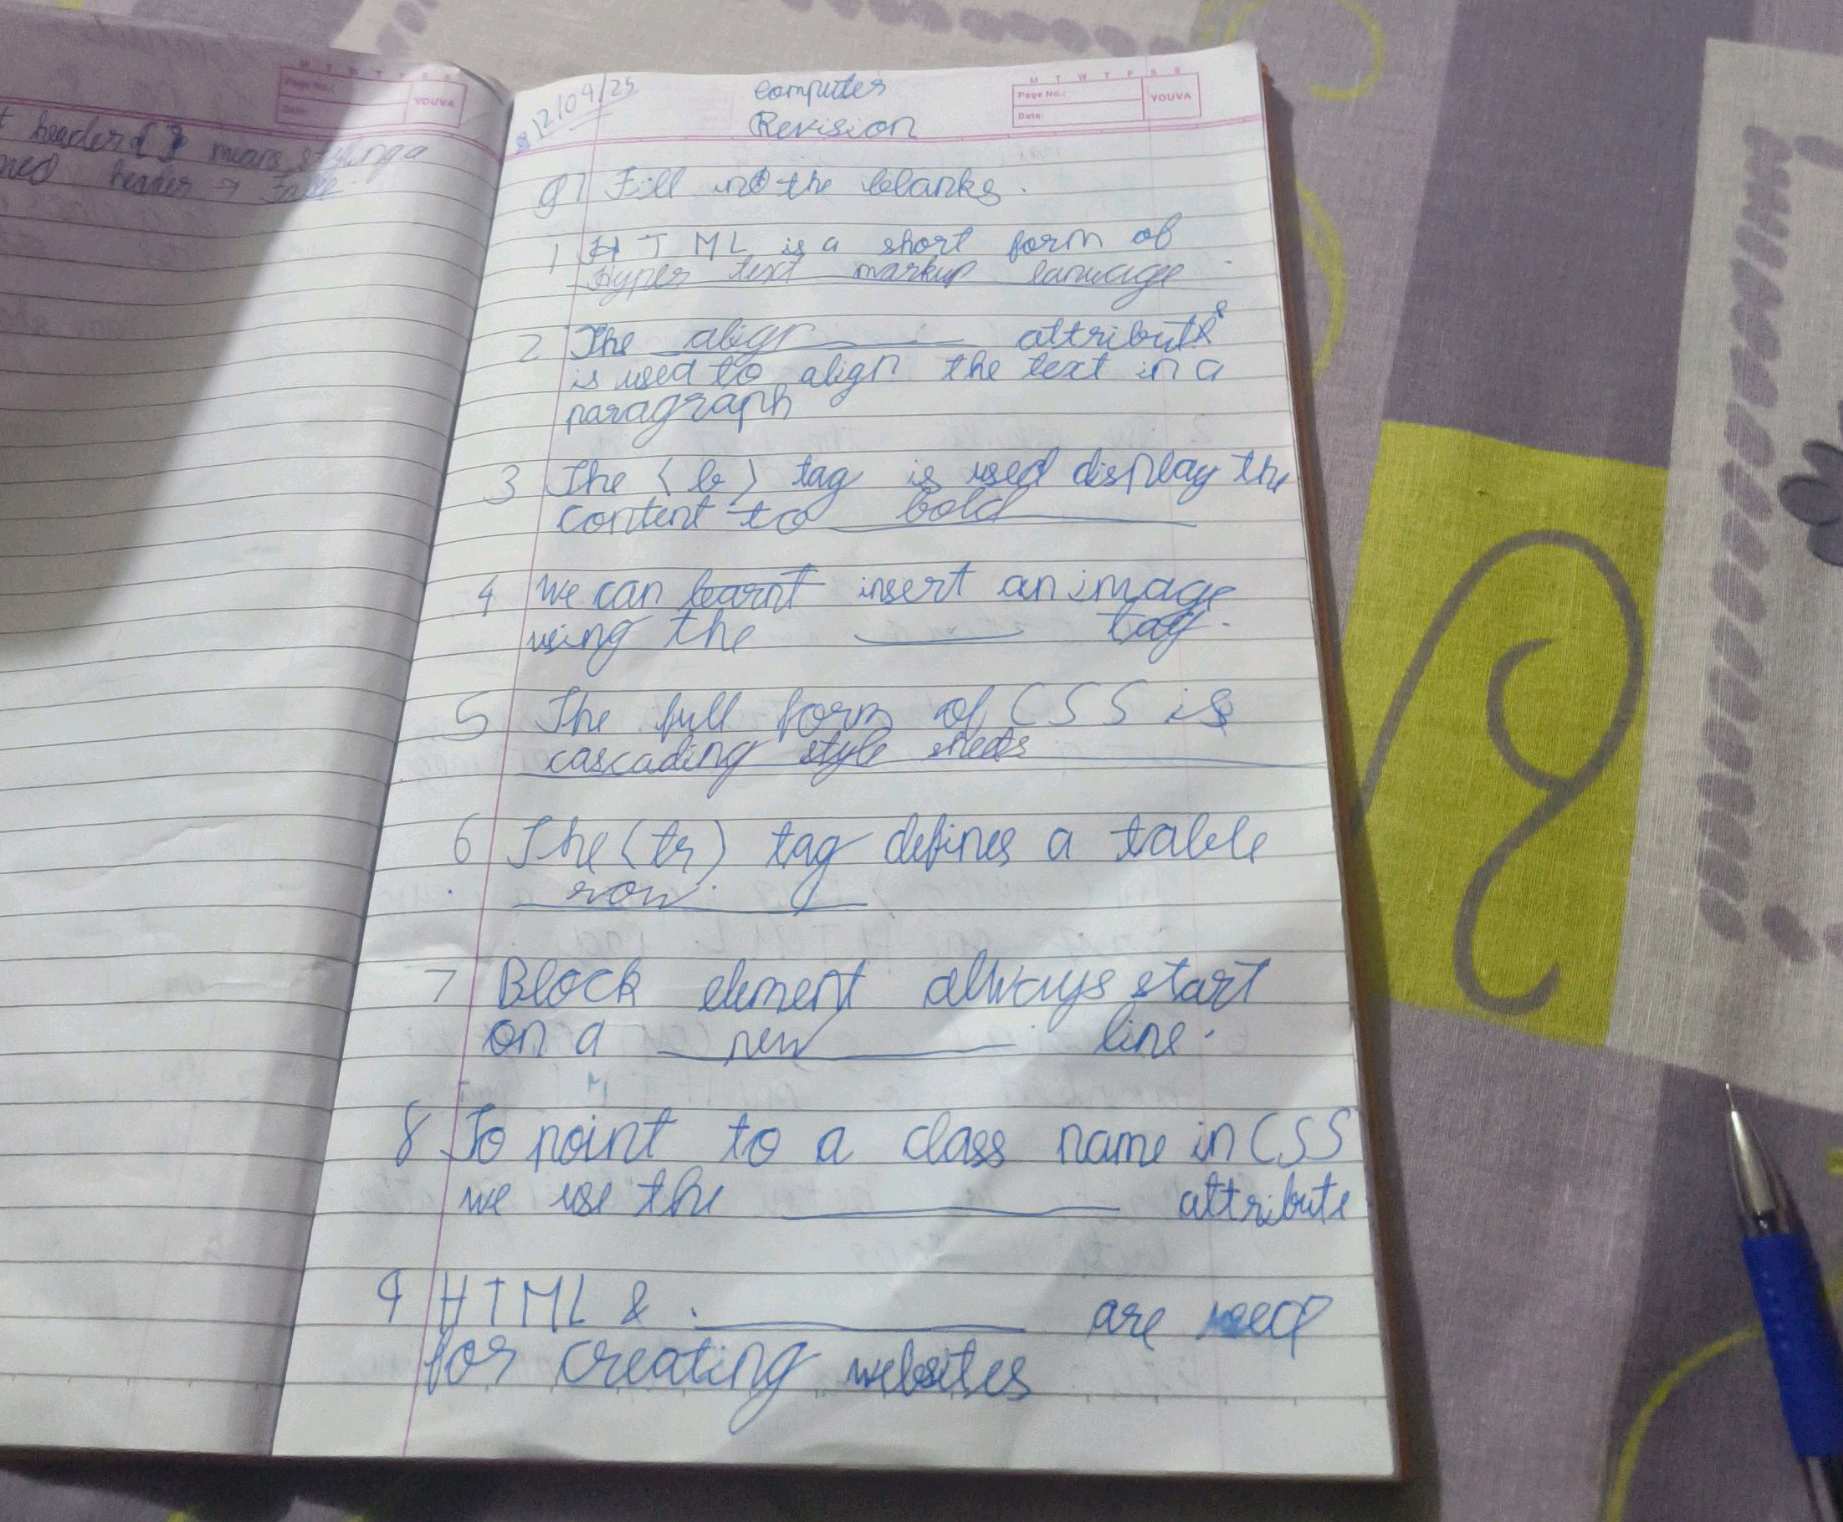 M T W T F S S
Page No.:
Date:
YOUVA
header { } means styling a
header → false
12/04/25
computer
Revision
M T W T F S S
Page No.:
Date:
YOUVA
Q1 Fill in the blanks.
1 HTML is a short form of
Hyper text markup language
2 The align attribute
is used to align the text in a
paragraph
3 The <b> tag is used display the
content to bold
4 We can learnt insert an image
using the ______ tag.
5 The full form of CSS is
cascading style sheets
6 The (tr) tag defines a table
row.
7 Block element always start
on a new line.
8 To point to a class name in CSS
we use the ______ attribute
9 HTML & ______ are need
for creating websites